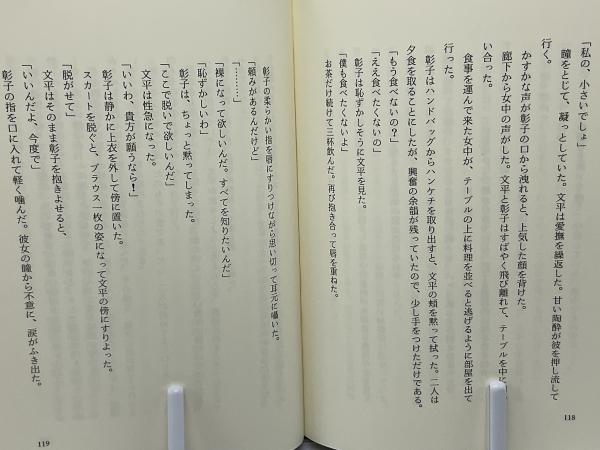 「私の、小さいでしょ」
瞳をとじて、凝っとしていた。文平は愛撫を繰返した。甘い陶酔が彼を押し流して
行く。
かすかな声が彰子の口から洩れると、上気した顔を背けた。
廊下から女中の声がした。文平と彰子はすばやく飛び離れて、テーブルを中に
い合った。
食事を運んで来た女中が、テーブルの上に料理を並べると逃げるように部屋を出て
行った。
彰子はハンドバッグからハンケチを取り出すと、文平の頬を黙って拭った。二人は
夕食を取ることにしたが、興奮の余韻が残っていたので、少し手をつけただけである。
「もう食べないの?」
「ええ食べたくないの」
彰子は恥ずかしそうに文平を見た。
「僕も食べたくないよ」
お茶だけ続けて三杯飲んだ。再び抱き合って唇を重ねた。
118
彰子の柔らかい指を唇にすりつけながら思い切って耳元に囁いた。
「頼みがあるんだけど」
「………」
「裸になって欲しいんだ。すべてを知りたいんだ」
「恥ずかしいわ」
彰子は、ちょっと黙ってしまった。
「ここで脱いで欲しいんだ」
文平は性急になった。
「いいわ、貴方が願うなら!」
彰子は静かに上衣を外して傍に置いた。
スカートを脱ぐと、ブラウス一枚の姿になって文平の傍にすりよった。
「脱がせて」
文平はそのまま彰子を抱きよせると、
「いいんだよ、今度で」
彰子の指を口に入れて軽く噛んだ。彼女の瞳から不意に、涙がふき出た。
119